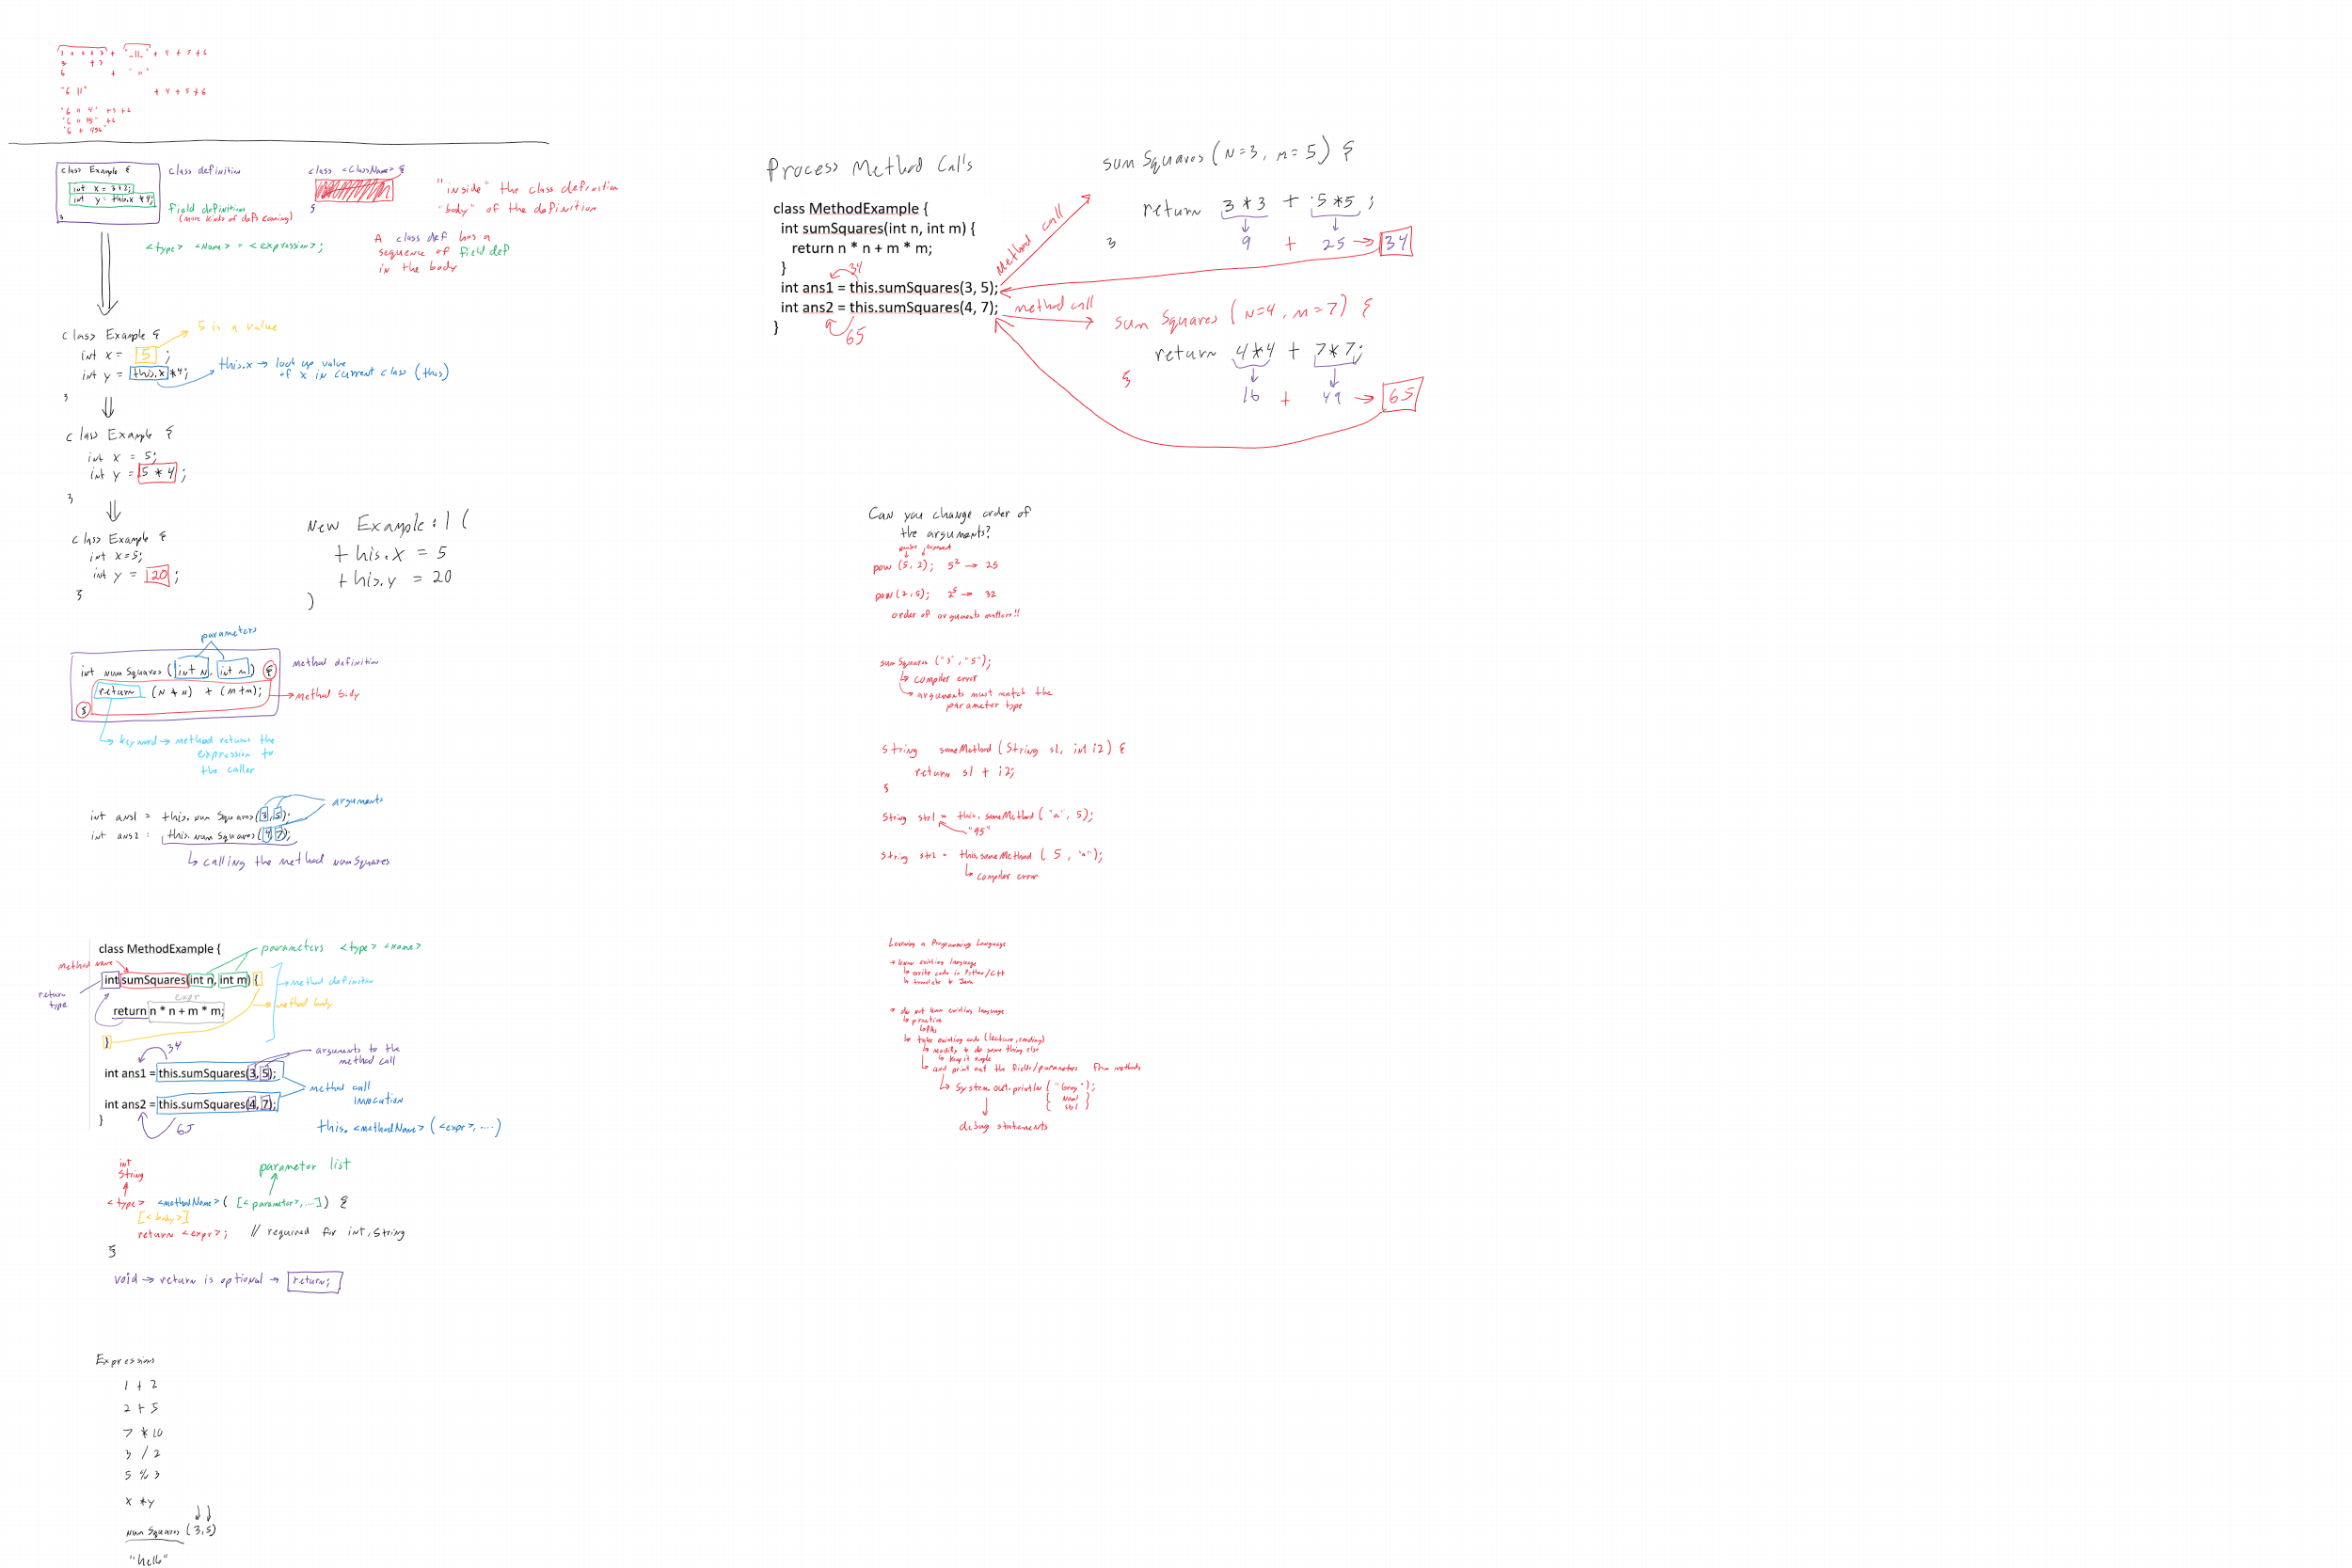 1 + 2 + 3 + "_11_" + 4 + 5 + 6
3 + 3
6 + "_11"
"6 11" + 4 + 5 + 6
"6 11 4" + 5 + 6
"6 11 45" + 6
"6 11 456"
class Example {
int x = 3+2;
int y = this.x * 4;
}
class definition
field definition
(more kinds of defs coming)
class <ClassName> {
}
"inside" the class definition
"body" of the definition
<type> <name> = <expression>;
A class def has a
sequence of field def
in the body
class Example {
int x = 5 ;
int y = this.x * 4;
}
5 is a value
this.x → look up value
of x in current class (this)
class Example {
int x = 5;
int y = 5 * 4 ;
}
class Example {
int x=5;
int y = 20 ;
}
New Example:1 (
this.x = 5
this.y = 20
)
parameters
int numSquares (int n, int m) {
return (n * n) + (m * m);
}
method definition
method body
keyword → method returns the
expression to
the caller
int ans1 = this.numSquares(3,5);
int ans2 = this.numSquares(4,7);
arguments
calling the method numSquares
class MethodExample {
parameters <type> <name>
method name
int sumSquares(int n, int m) {
return
type
expr
return n * n + m * m;
}
method definition
method body
34
arguments to the
method call
int ans1 = this.sumSquares(3, 5);
method call
invocation
int ans2 = this.sumSquares(4, 7);
}
65
this.<methodName>(<expr>, ....)
int
String
parameter list
<type> <methodName> ( [<parameter>, ...] ) {
[<body>]
return <expr>; // required for int, String
}
void → return is optional → return;
Expressions
1 + 2
2 + 5
7 * 10
3 / 2
5 % 3
x * y
numSquares (3,5)
"hello"
Process Method Calls
class MethodExample {
int sumSquares(int n, int m) {
return n * n + m * m;
}
34
int ans1 = this.sumSquares(3, 5);
int ans2 = this.sumSquares(4, 7);
}
65
Method call
sumSquares (n=3, m=5) {
return 3*3 + 5*5 ;
9 + 25 → 34
}
method call
sumSquares (n=4, m=7) {
return 4*4 + 7*7;
16 + 49 → 65
}
Can you change order of
the arguments?
pow (5, 2); 5² → 25
pow (2, 5); 2⁵ → 32
order of arguments matters!!
sumSquares ("3", "5");
compiler error
arguments must match the
parameter type
String someMethod (String s1, int i2) {
return s1 + i2;
}
String str1 = this.someMethod ("a", 5);
"a5"
String str2 = this.someMethod ( 5 , "a");
compiler error
Learning a Programming Language
→ know existing language
write code in Python/C++
translate to Java
→ do not know existing language
practice
PAs
take existing code (lecture, reading)
modify to do something else
keep it simple
and print out the fields/parameters from methods
System.out.println ( "Greg" );
str1
debug statements